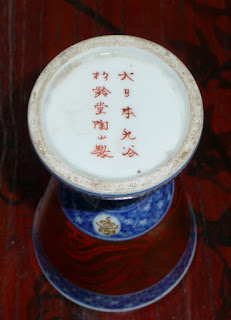 大日本九谷
松齡堂陶山製